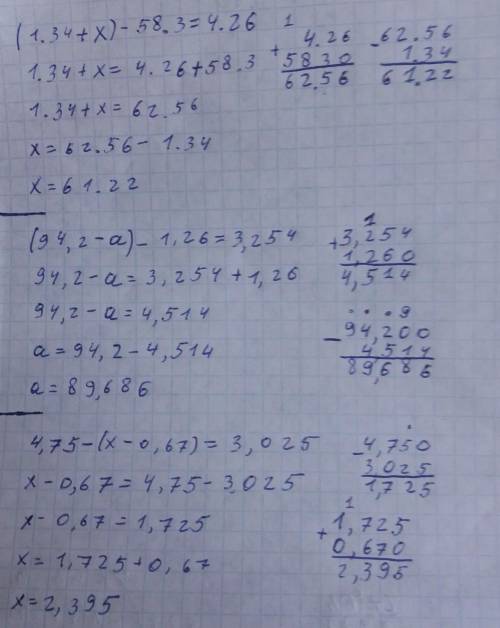 (1.34+x)-58.3=4.26
1.34+x=4.26+58.3
1.34+x=62.56
x=62.56-1.34
x=61.22
1
+4.26
5830
62.56
-62.56
1.34
61.22
(94,2-a)-1,26=3,254
94,2-a=3,254+1,26
94,2-a=4,514
a=94,2-4,514
a=89,686
1
+3,254
1,260
4,514
. . . 9
-94,200
4,514
89,686
4,75-(x-0,67)=3,025
x-0,67=4,75-3.025
x-0,67=1,725
x=1,725+0,67
x=2,395
.
-4,750
3,025
1,725
1
+1,725
0,670
2,395